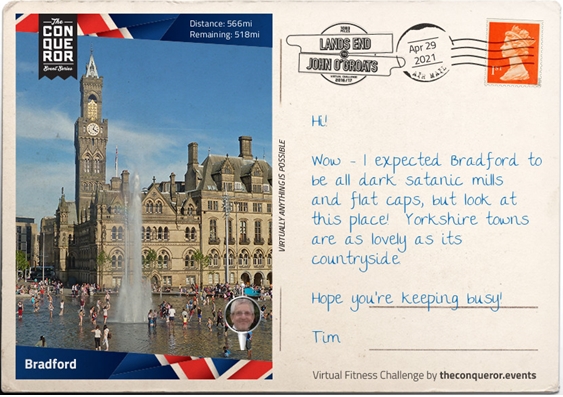 The
CON
QUE
ROR
Event Series
Distance: 566mi
Remaining: 518mi
Bradford
VIRTUALLY ANYTHING IS POSSIBLE
LANDS END
TO
JOHN O'GROATS
VIRTUAL CHALLENGE
2016/17
Apr 29
2021
AIR MAIL
1ST
Hi!
Wow - I expected Bradford to
be all dark satanic mills
and flat caps, but look at
this place! Yorkshire towns
are as lovely as its
countryside
Hope you're keeping busy!
Tim
Virtual Fitness Challenge by theconqueror.events